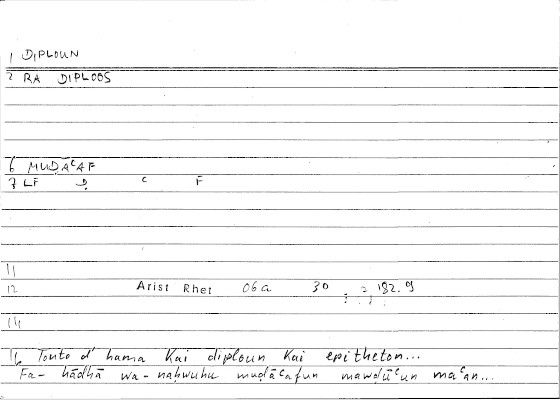 1 DIPLOUN
2 RA DIPLOOS
6 MUḌĀᶜAF
7 LF Ḍ ᶜ F
11
12 Arist Rhet 06a 30 : 182.9
14
16 Touto d' hama Kai diploun Kai epitheton...
Fa- hādhā wa-naḥwuhu muḍāᶜafun mawḍūᶜun maᶜan...